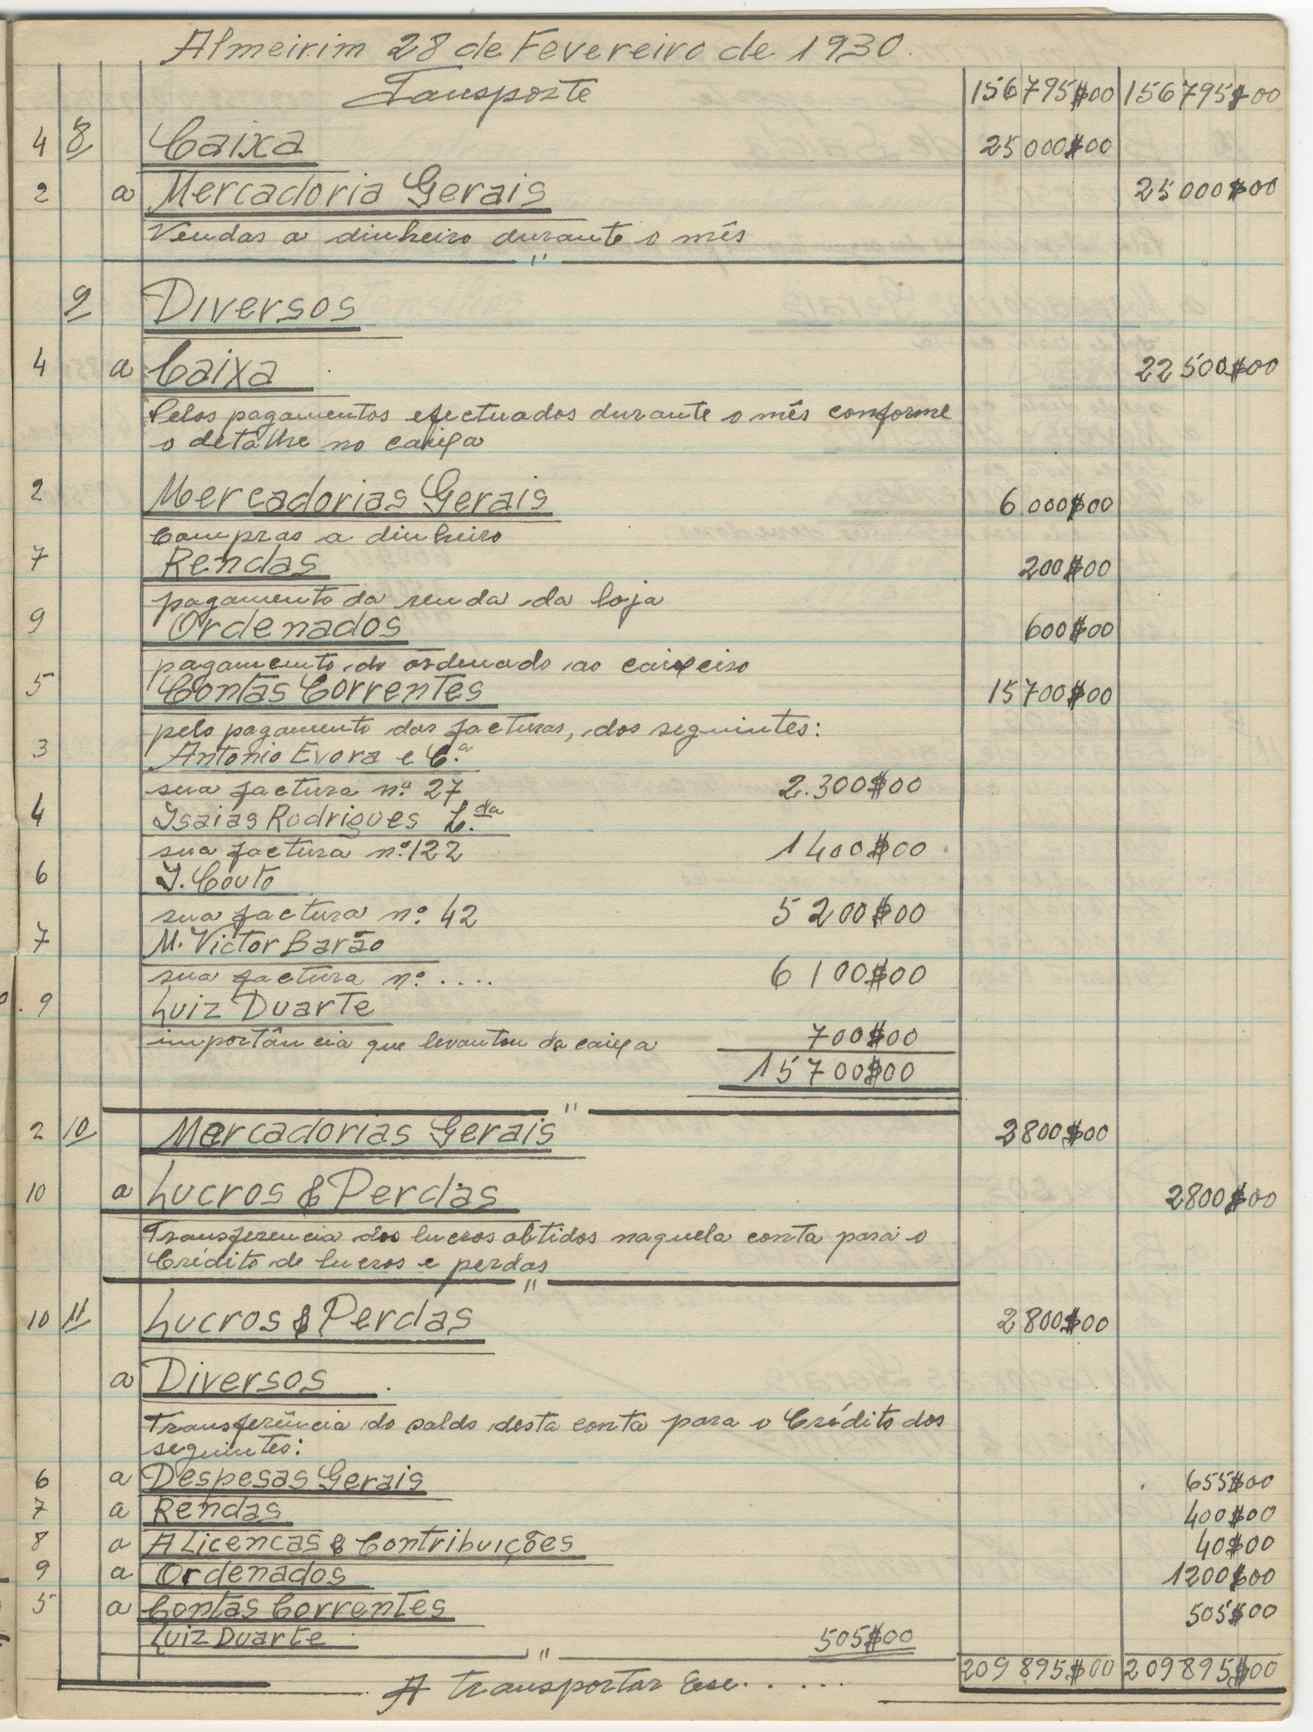 Almeirim 28 de Fevereiro de 1930.
Transporte 156795$00 156795$00
4 8 Caixa 25000$00
2 a Mercadoria Gerais 25000$00
Vendas a dinheiro durante o mês
"
9 Diversos
4 a Caixa 22500$00
Pelos pagamentos efectuados durante o mês conforme
o detalhe no caixa
2 Mercadorias Gerais 6000$00
Compras a dinheiro
7 Rendas 200$00
pagamento da renda da loja
9 Ordenados 600$00
pagamento do ordenado ao caixeiro
5 Contas Correntes 15700$00
pelo pagamento das facturas, dos seguintes:
3 Antonio Evora e C.ª
sua factura nº 27 2.300$00
4 Isaias Rodrigues L.da
sua factura nº 122 1400$00
6 J. Couto
sua factura nº 42 5200$00
7 M. Victor Barão
sua factura nº .... 6100$00
9 Luiz Duarte
importância que levantou da caixa 700$00
15700$00
"
2 10 Mercadorias Gerais 2800$00
10 a Lucros & Perdas 2800$00
Transferencia dos lucros obtidos naquela conta para o
Crédito de lucros e perdas
"
10 11 Lucros & Perdas 2800$00
a Diversos
Transferência do saldo desta conta para o Crédito dos
seguintes:
6 a Despesas Gerais 655$00
7 a Rendas 400$00
8 a A Licencas & Contribuições 40$00
9 a Ordenados 1200$00
5 a Contas Correntes 505$00
Luiz Duarte 505$00
"
209895$00 209895$00
A transportar Esc.....